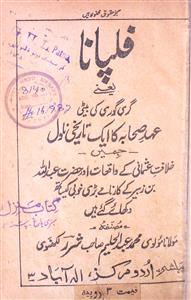 فلپانا
یعنے
گریگوری کی بیٹی
عہد صحابہ کا ایک تاریخی ناول
جسمیں
خلافت عثمانی کے واقعات اور حضرت عبداللہ
بن زبیر کے کارنامے بڑی خوبی کیساتھ
دکھائے گئے ہیں
مصنفہ
مولانا مولوی محمد عبدالحلیم صاحب شرر لکھنوی
اردو مرکز۔ الہ آباد ۳
قیمت ۳ روپیہ